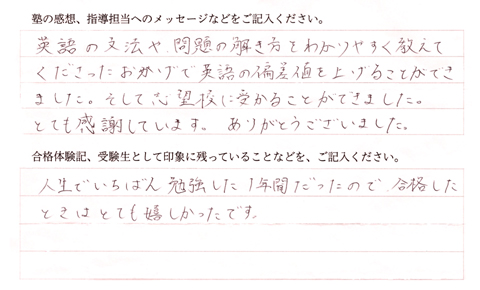 塾の感想、指導担当へのメッセージなどをご記入ください。
英語の文法や、問題の解き方をわかりやすく教えて
くださったおかげで英語の偏差値を上げることができ
ました。そして志望校に受かることができました。
とても感謝しています。ありがとうございました。
合格体験記、受験生として印象に残っていることなどを、ご記入ください。
人生でいちばん勉強した1年間だったので、合格した
ときはとても嬉しかったです。